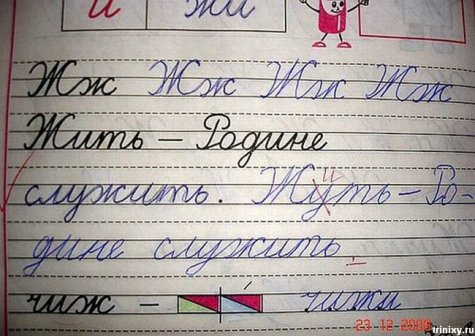 и жи
Жж Жж Жж Жж
Жить – Родине
служить. Жуть – Ро-
и
дине служить
чиж – чижи
23 12 2006
trinixy.ru